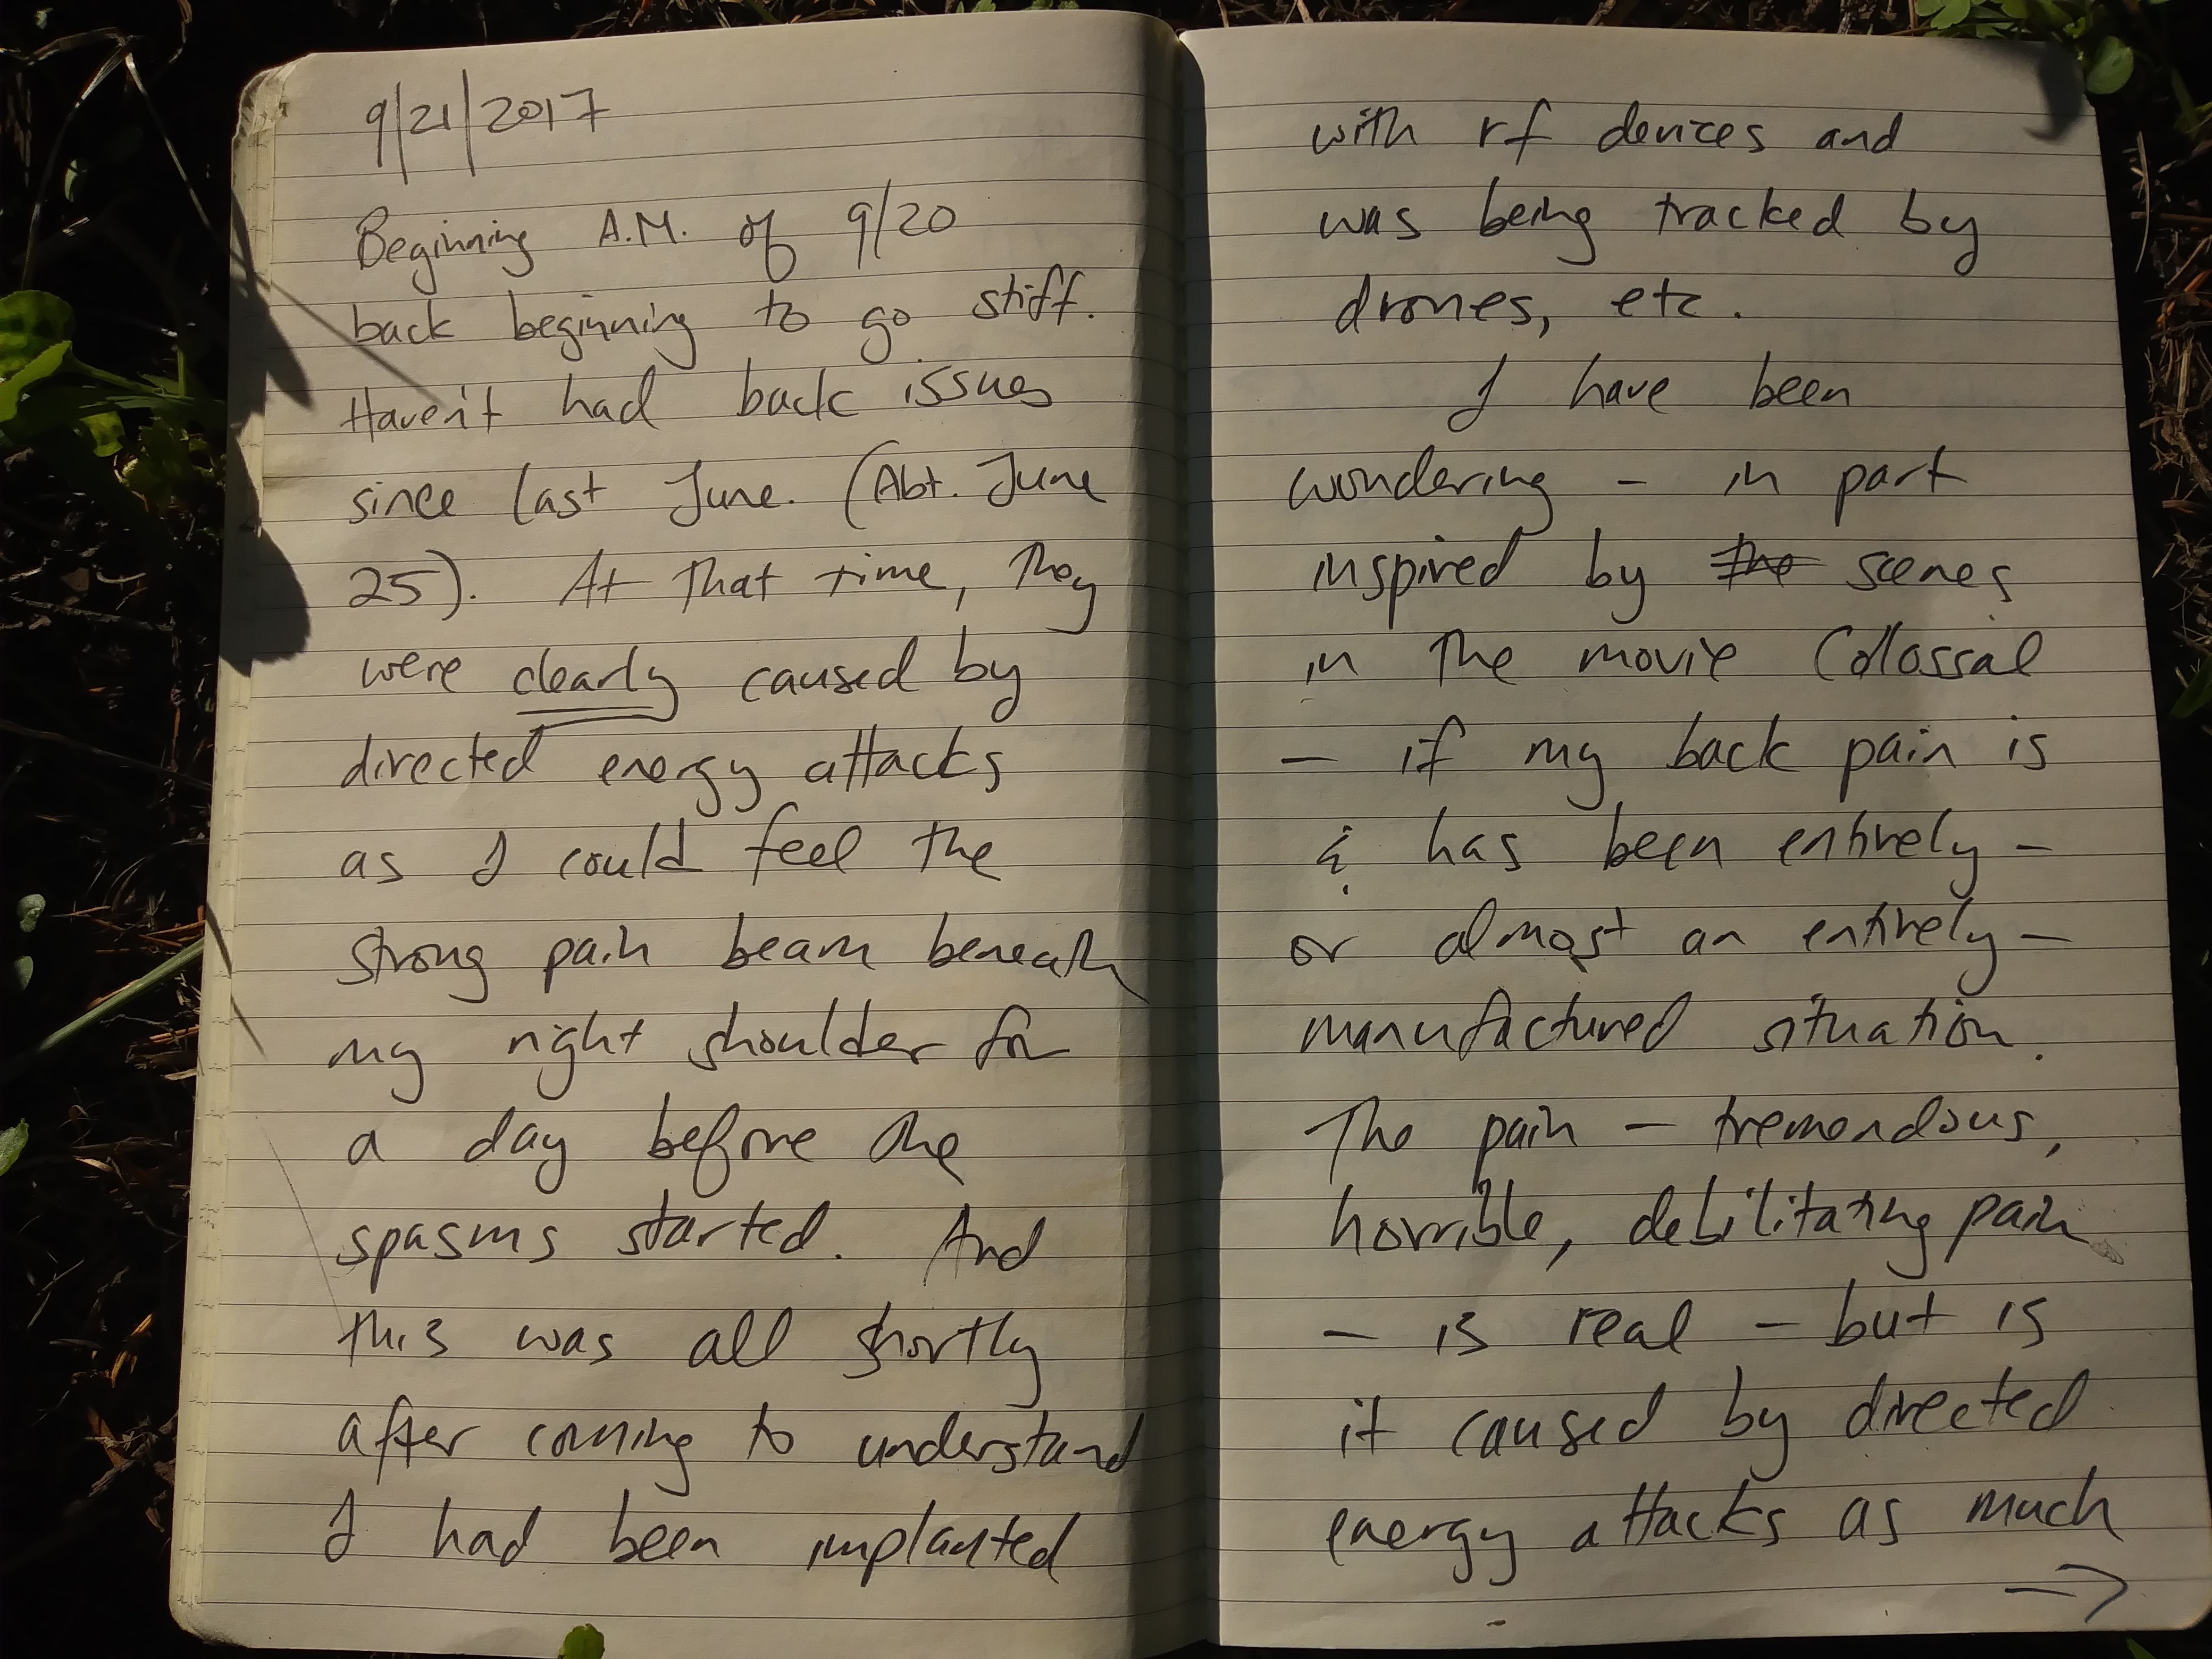 9/21/2017
Beginning A.M. of 9/20
back beginning to go stiff.
Haven't had back issues
since last June. (Abt. June
25). At that time, they
were clearly caused by
directed energy attacks
as I could feel the
strong pain beam beneath
my right shoulder for
a day before the
spasms started. And
this was all shortly
after coming to understand
I had been implanted
with rf devices and
was being tracked by
drones, etc.
I have been
wondering - in part
inspired by the scenes
in the movie Colossal
- if my back pain is
& has been entirely -
or almost an entirely -
manufactured situation.
The pain - tremendous,
horrible, debilitating pain
- is real - but is
it caused by directed
energy attacks as much
→